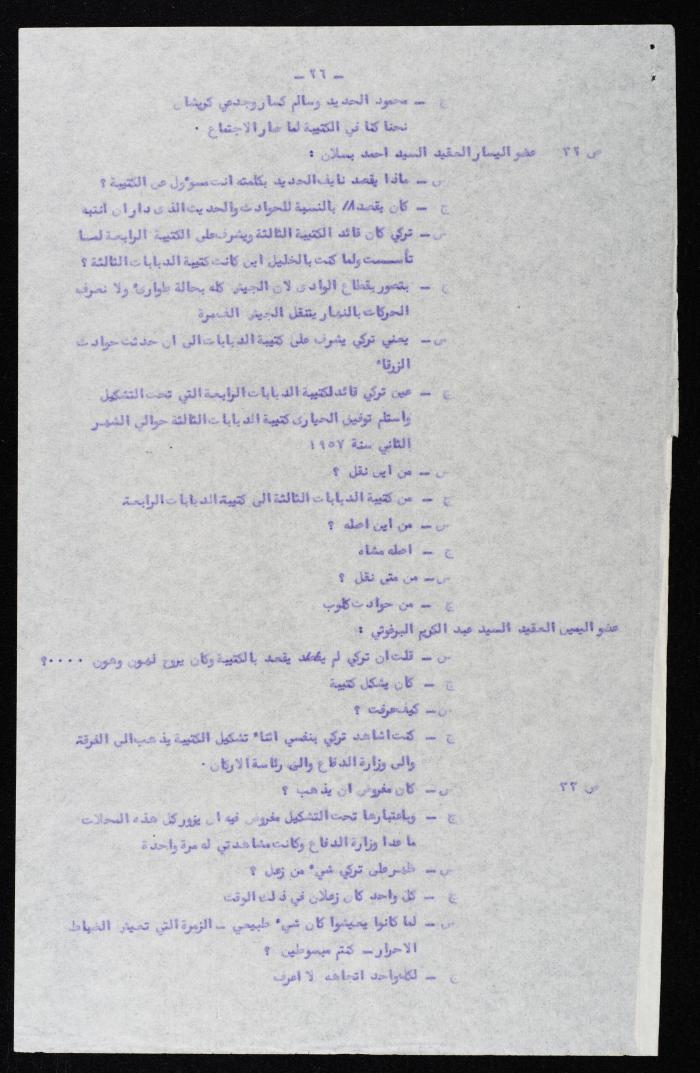 - ٢٦ -
ج - محمود الحديد وسالم كسار وجدعي كريشان
نحنا كنا في الكتيبة لما صار الاجتماع .
ص ٢٢ عضو اليسار العقيد السيد احمد يسلان :
س - ماذا يقصد نايف الحديد بكلمته انت مسوءول عن الكتيبة ؟
ج - كان يقصد بالنسبة للحوادث والحديث الذى دار ان انتبه
س - تركي كان قائد الكتيبة الثالثة ويشرف على الكتيبة الرابعة لما
تأسست ولما كنت بالخليل اين كانت كتيبة الدبابات الثالثة ؟
ج - بتصور بقطاع الوادى لان الجيش كله بحالة طوارئ ولا نعرف
الحركات بالنهار يتنقل الجيش الف مرة
س - يعني تركي يشرف على كتيبة الدبابات الى ان حدثت حوادث
الزرقاء
ج - عين تركي قائد لكتيبة الدبابات الرابعة التي تحت التشكيل
واستلم توفيق الحيارى كتيبة الدبابات الثالثة حوالي الشهر
الثاني سنة ١٩٥٧
س - من اين نقل ؟
ج - من كتيبة الدبابات الثالثة الى كتيبة الدبابات الرابعة
س - من اين اصله ؟
ج - اصله مشاه
س - من متى نقل ؟
ج - من حوادث كلوب
عضو اليمين العقيد السيد عبد الكريم البرغوثي :
س - قلت ان تركي لم يقصد بالكتيبة وكان يروح لهون وهون ....؟
ج - كان يشكل كتيبة
س - كيف عرفت ؟
ج - كنت اشاهد تركي بنفسي اثناء تشكيل الكتيبة يذهب الى الفرقة
والى وزارة الدفاع والى رئاسة الاركان .
ص ٢٣ س - كان مفروض ان يذهب ؟
ج - وباعتبارها تحت التشكيل مفروض فيه ان يزور كل هذه المحلات
ما عدا وزارة الدفاع وكانت مشاهدتي له مرة واحدة
س - ظهر على تركي شيء من زعل ؟
ج - كل واحد كان زعلان في ذلك الوقت
س - لما كانوا يعيشوا كان شيء طبيعي - الزمرة التي تعيش الضباط
الاحرار - كنتم مبسوطين ؟
ج - لكل واحد اتجاهه لا اعرف